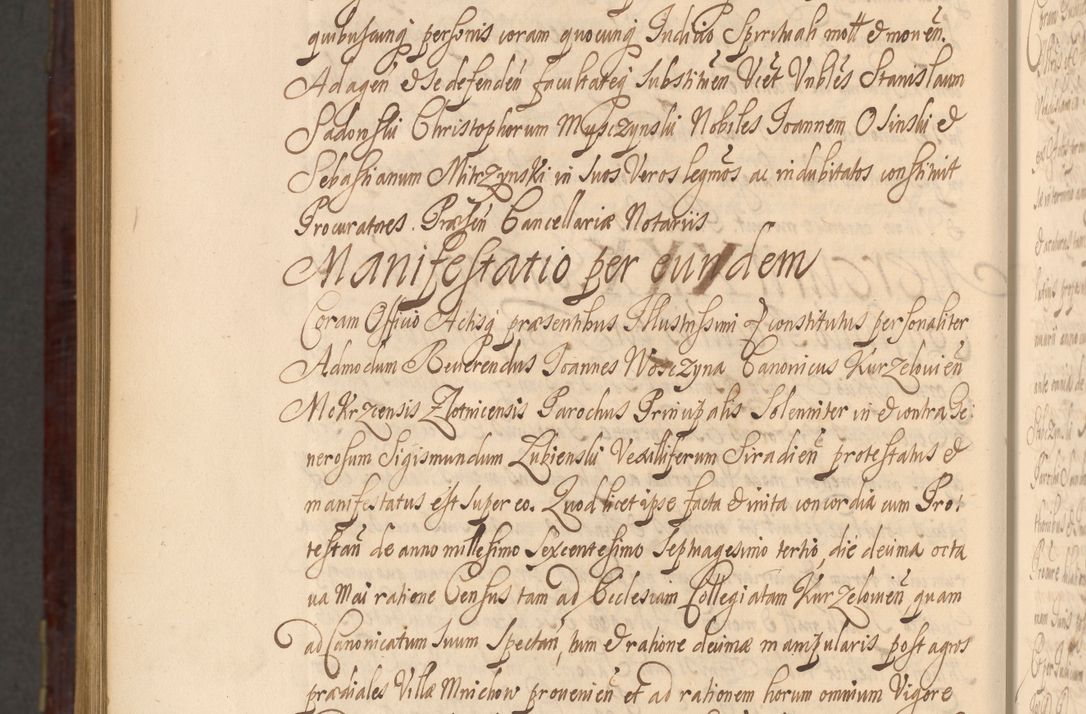 quibuscunq personis coram quocunq Judicio Spirituali mott & moven̄.
Ad agen̄ & se defenden̄ facultateq substituen̄ Ucēt Vnbles Stanislaum
Sadowski Christophorum Myszczynski Nobiles Joannem Osinski &
Sebastianum Mitrzynski in suos Veros legmōs ac indubitatos constituit
Procuratores. Præsen̄ Cancellariæ Notariis
Manifestatio per eundem
Coram Officio Actisq præsentibus Illustrissimi & constitutus personaliter
Admodum Reverendus Joannes Woszczyna Canonicus Kurzelovien̄
Mokrzcensis Zlotnicensis Parochus Principalis solenniter in & contra Ge
nerosum Sigismundum Lubienski Vexilliferum Siradien̄ protestatus &
manifestatus est super eo. Quod licet ipse facta & inita concordia cum Prot
testan̄ de anno millesimo sexcentesimo septuagesimo tertio, die decima octa
va Maii ratione Census tam ad Ecclesiam Collegiatam Kurzelovien̄, quam
ad Canonicatum suum spectan̄, tum & ratione decimæ manipularis post agros
prædiales Villæ Mnichow provenien̄ et ad rationem horum omnium Vigore